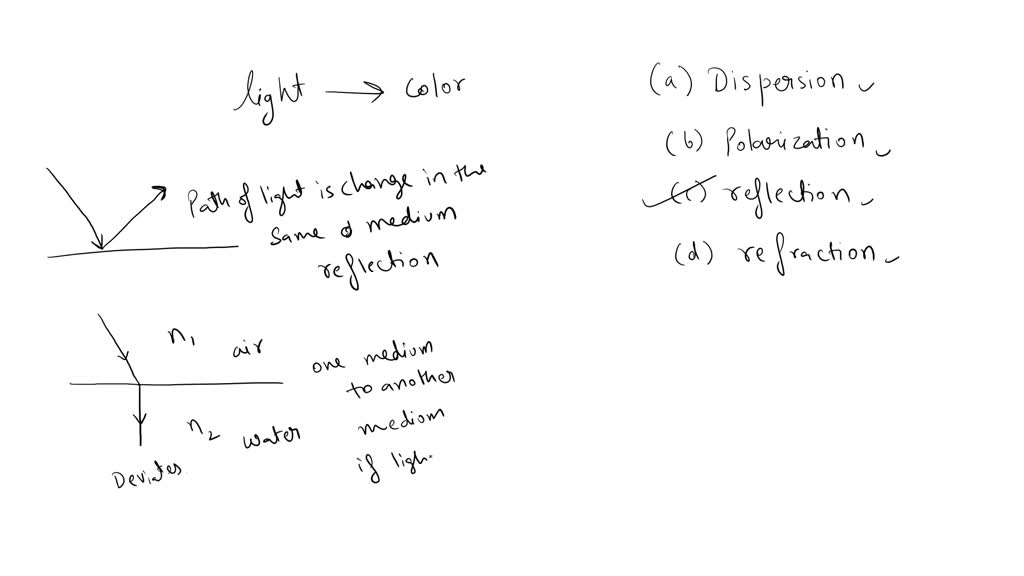 light → color
Path of light is change in the
same of medium
reflection
n1 air
n2 water
Deviates
one medium
to another
mediom
if ligh
(a) Dispersion
(b) Polarization
(c) reflection
(d) refraction